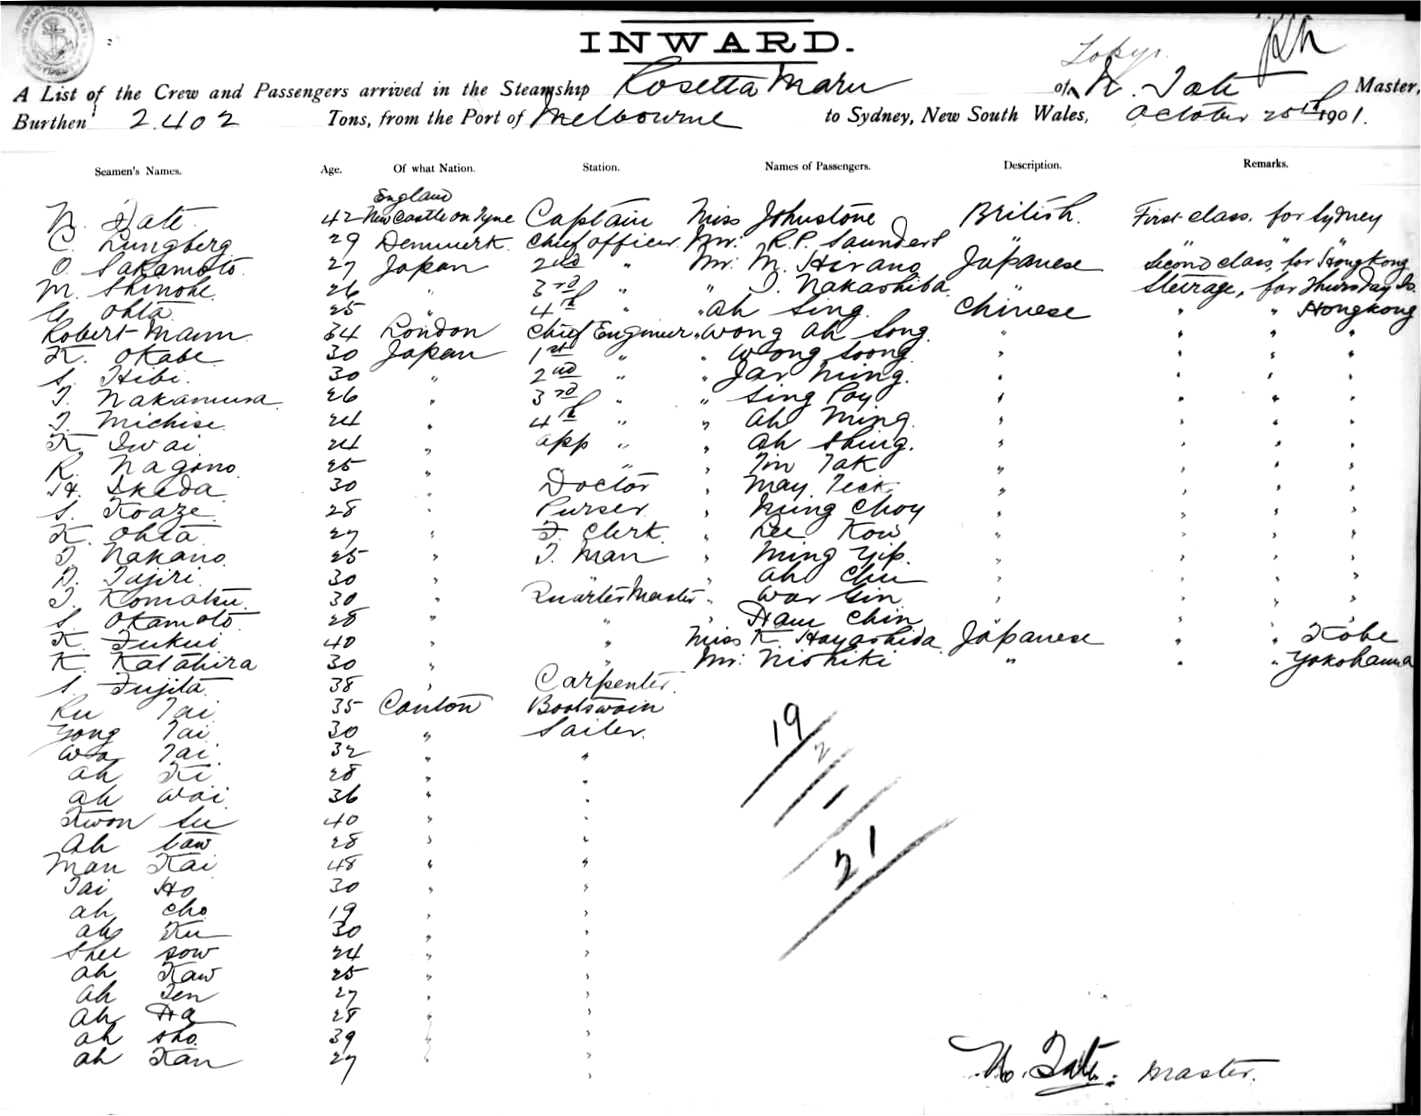 INWARD.
Tokyo.
A List of the Crew and Passengers arrived in the Steamship Rosetta Maru of N. Tate Master,
Burthen 2.402 Tons, from the Port of Melbourne to Sydney, New South Wales, October 25th 1901.
Seamen's Names. Age. Of what Nation. Station. Names of Passengers. Description. Remarks.
England
N. Tate 42 New Castle on Tyne Captain Miss Johnstone British. First class. for Sydney
C. Lungberg 29 Denmerk. Chief officer. Mr. R.P. Saunders " " " "
O. Sakamoto 27 Japan 2nd " Mr. M. Hirano Japanese Second class, for Hongkong
M. Shinobe 26 " 3rd " " T. Nakashiba " Steerage, for Thursday Is.
G. Ohta 25 " 4th " " Ah Sing. Chinese " " Hongkong
Robert Mann 34 London Chief Engineer " Wong Ah Song. " " " "
K. Okabe 30 Japan 1st " " Wong Soong " " " "
S. Hibi. 30 " 2nd " " Jar Ning. " " " "
T. Nakamura 26 " 3rd " " Sing Poy " " " "
T. Michise 24 " 4th " " Ah Ming. " " " "
K. Iwai 24 " app " " Ah Shing. " " " "
R. Nagono 25 " " " Tin Tak " " " "
H. Ikeda 30 " Doctor " May Teck " " " "
S. Koaze 28 " Purser " Ning Choy " " " "
K. Ohta 27 " F. Clerk. " Lee Kow " " " "
T. Nakano. 25 " T. Man " Ning Yip. " " " "
D. Tajiri. 30 " " " Ah Chu " " " "
T. Komatsu. 30 " Quarter Master " War Gin " " " "
S. Okamoto 28 " " " Ham Chin " " " "
K. Fukui 40 " " Miss K. Hayashida Japanese " " Kobe
K. Katahira 30 " " Mr. Nishiki " " " Yokohama
S. Fujita. 38 " Carpenter.
Ku Tai 35 Canton Boatswain
Yong Tai 30 " Sailer.
Wa Tai 32 " "
Ah Ki 28 " "
Ah Wai 36 " "
Kwon Su 40 " "
Ah Saw 28 " "
Man Kai 48 " "
Tai Ho 30 " "
Ah Cho 19 " "
Ah Ku 30 " "
Shee Sow 24 " "
Ah Kaw 25 " "
Ah Sen 27 " "
Ah Ha 28 " "
Ah Sho. 39 " "
Ah Kan 27 " "
19
2
1
21
N. Tate: Master.